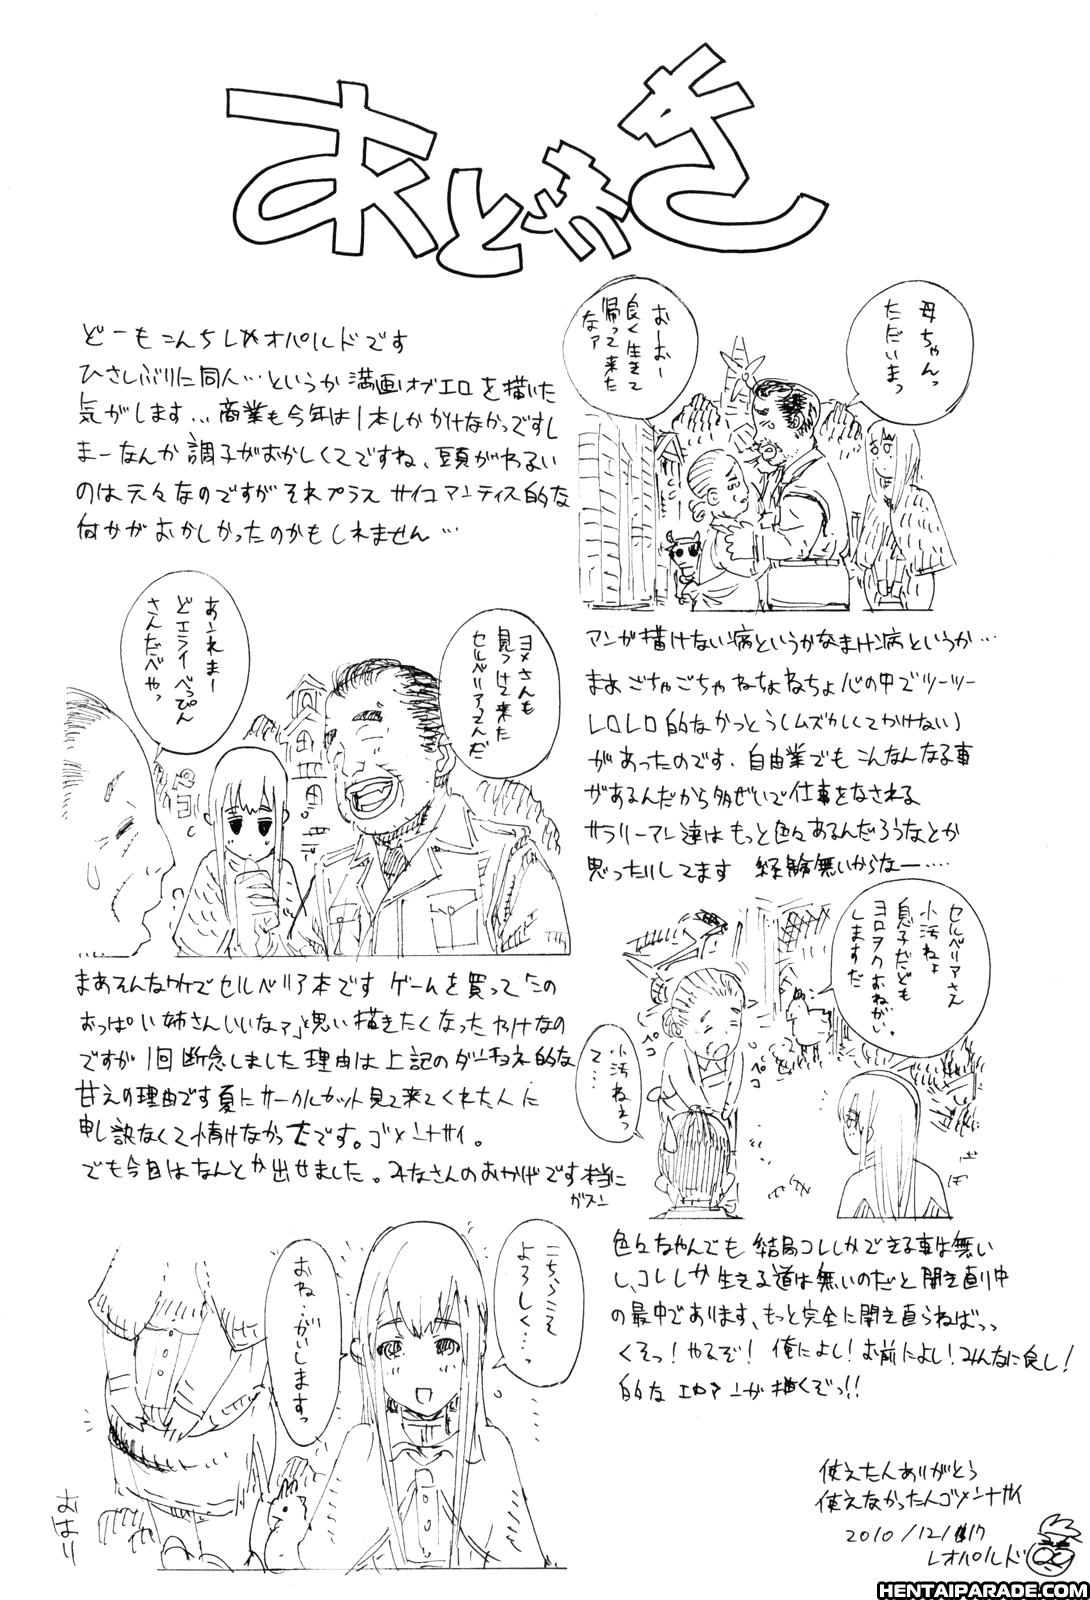 あとがき
どーもこんちしゃオパルドです
ひさしぶりに同人…というか満画オブエロを描いた
気がします…商業も今年は1本しかかけなかっですし
まーなんか調子がおかしくてですね、頭がわるい
のは元々なのですがそれプラスサイコマンティス的な
何かがおかしかったのかもしれません…
母ちゃんっ
ただいまっ
おーおー
良く生きて
帰って来た
なァ
マンが描けない病というかなまけ病というか…
まあごちゃごちゃねちょねちょ心の中でツーツー
レロレロ的なかっとう(ムズかしくてかけない)
があったのです、自由業でもこんなんなる事
があるんだから多ぜいで仕事をなされる
サラリーマン達はもっと色々あるんだろうなとか
思ったりしてます 経験無いからなー‥‥
ヨメさんも
見つけて来た
セルベリアさんだ
あんれまー
どエライべっぴん
さんだべやっ
まあそんなワケでセルベリア本です ゲームを買って「この
おっぱい姉さんいいなァ」と思い描きたくなったわけなの
ですが1回断念しました理由は上記のダーチョネ的な
甘えの理由です夏にサークルカット見て来てくれた人に
申し訳なくて情けなかったです。ゴメンナサイ。
でも今回はなんとか出せました。みなさんのおかげです本当に
ガスン
セルベリアさん
小汚ねぇ
息子だども
ヨロヲクおねがい
しますだ
小汚ねえっ
て…
ペコ
ペコ
色々なやんでも結局コレしかできる事は無い
し、コレしか生きる道は無いのだと開き直り中
の最中であります、もっと完全に開き直らねばっっ
くそっ!やるぞ!俺によし!お前によし!みんなに良し!
的なエロマンガ描くぞっ!!
こちらこそ
よろしく…っ
おね…がいしますっ
おはり
使えたんありがとう
使えなかったんゴメンナサイ
2010/12/17
レオパルド
HENTAIPARADE.COM